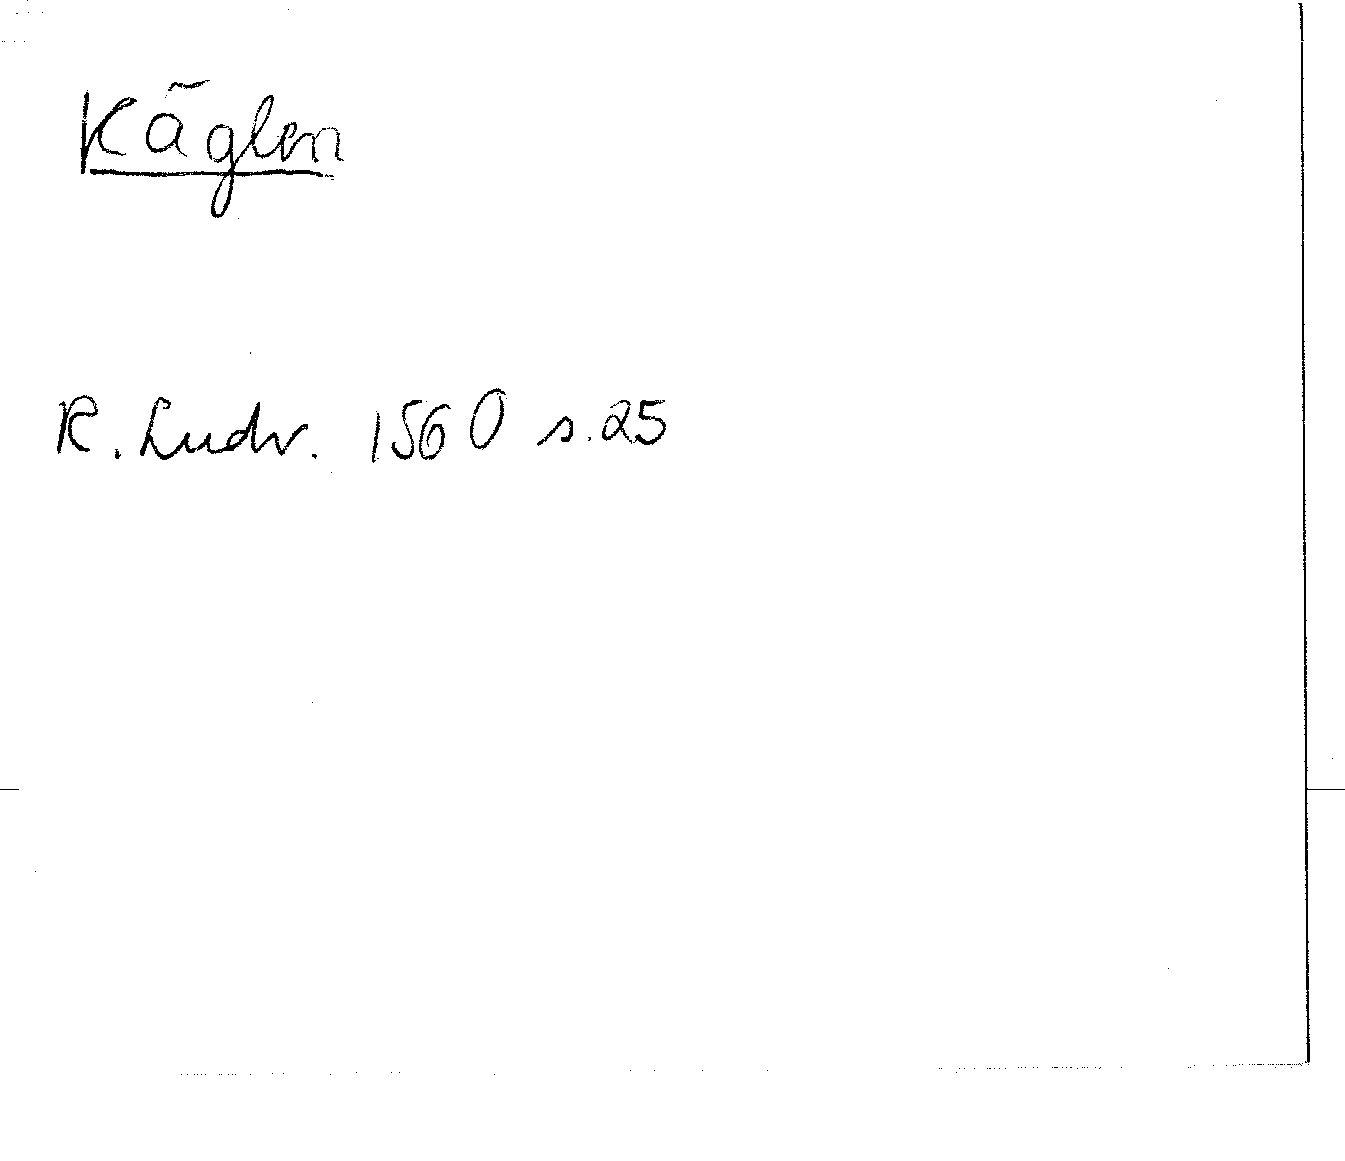 Käglen
R. Ludv. 1560 s. 25